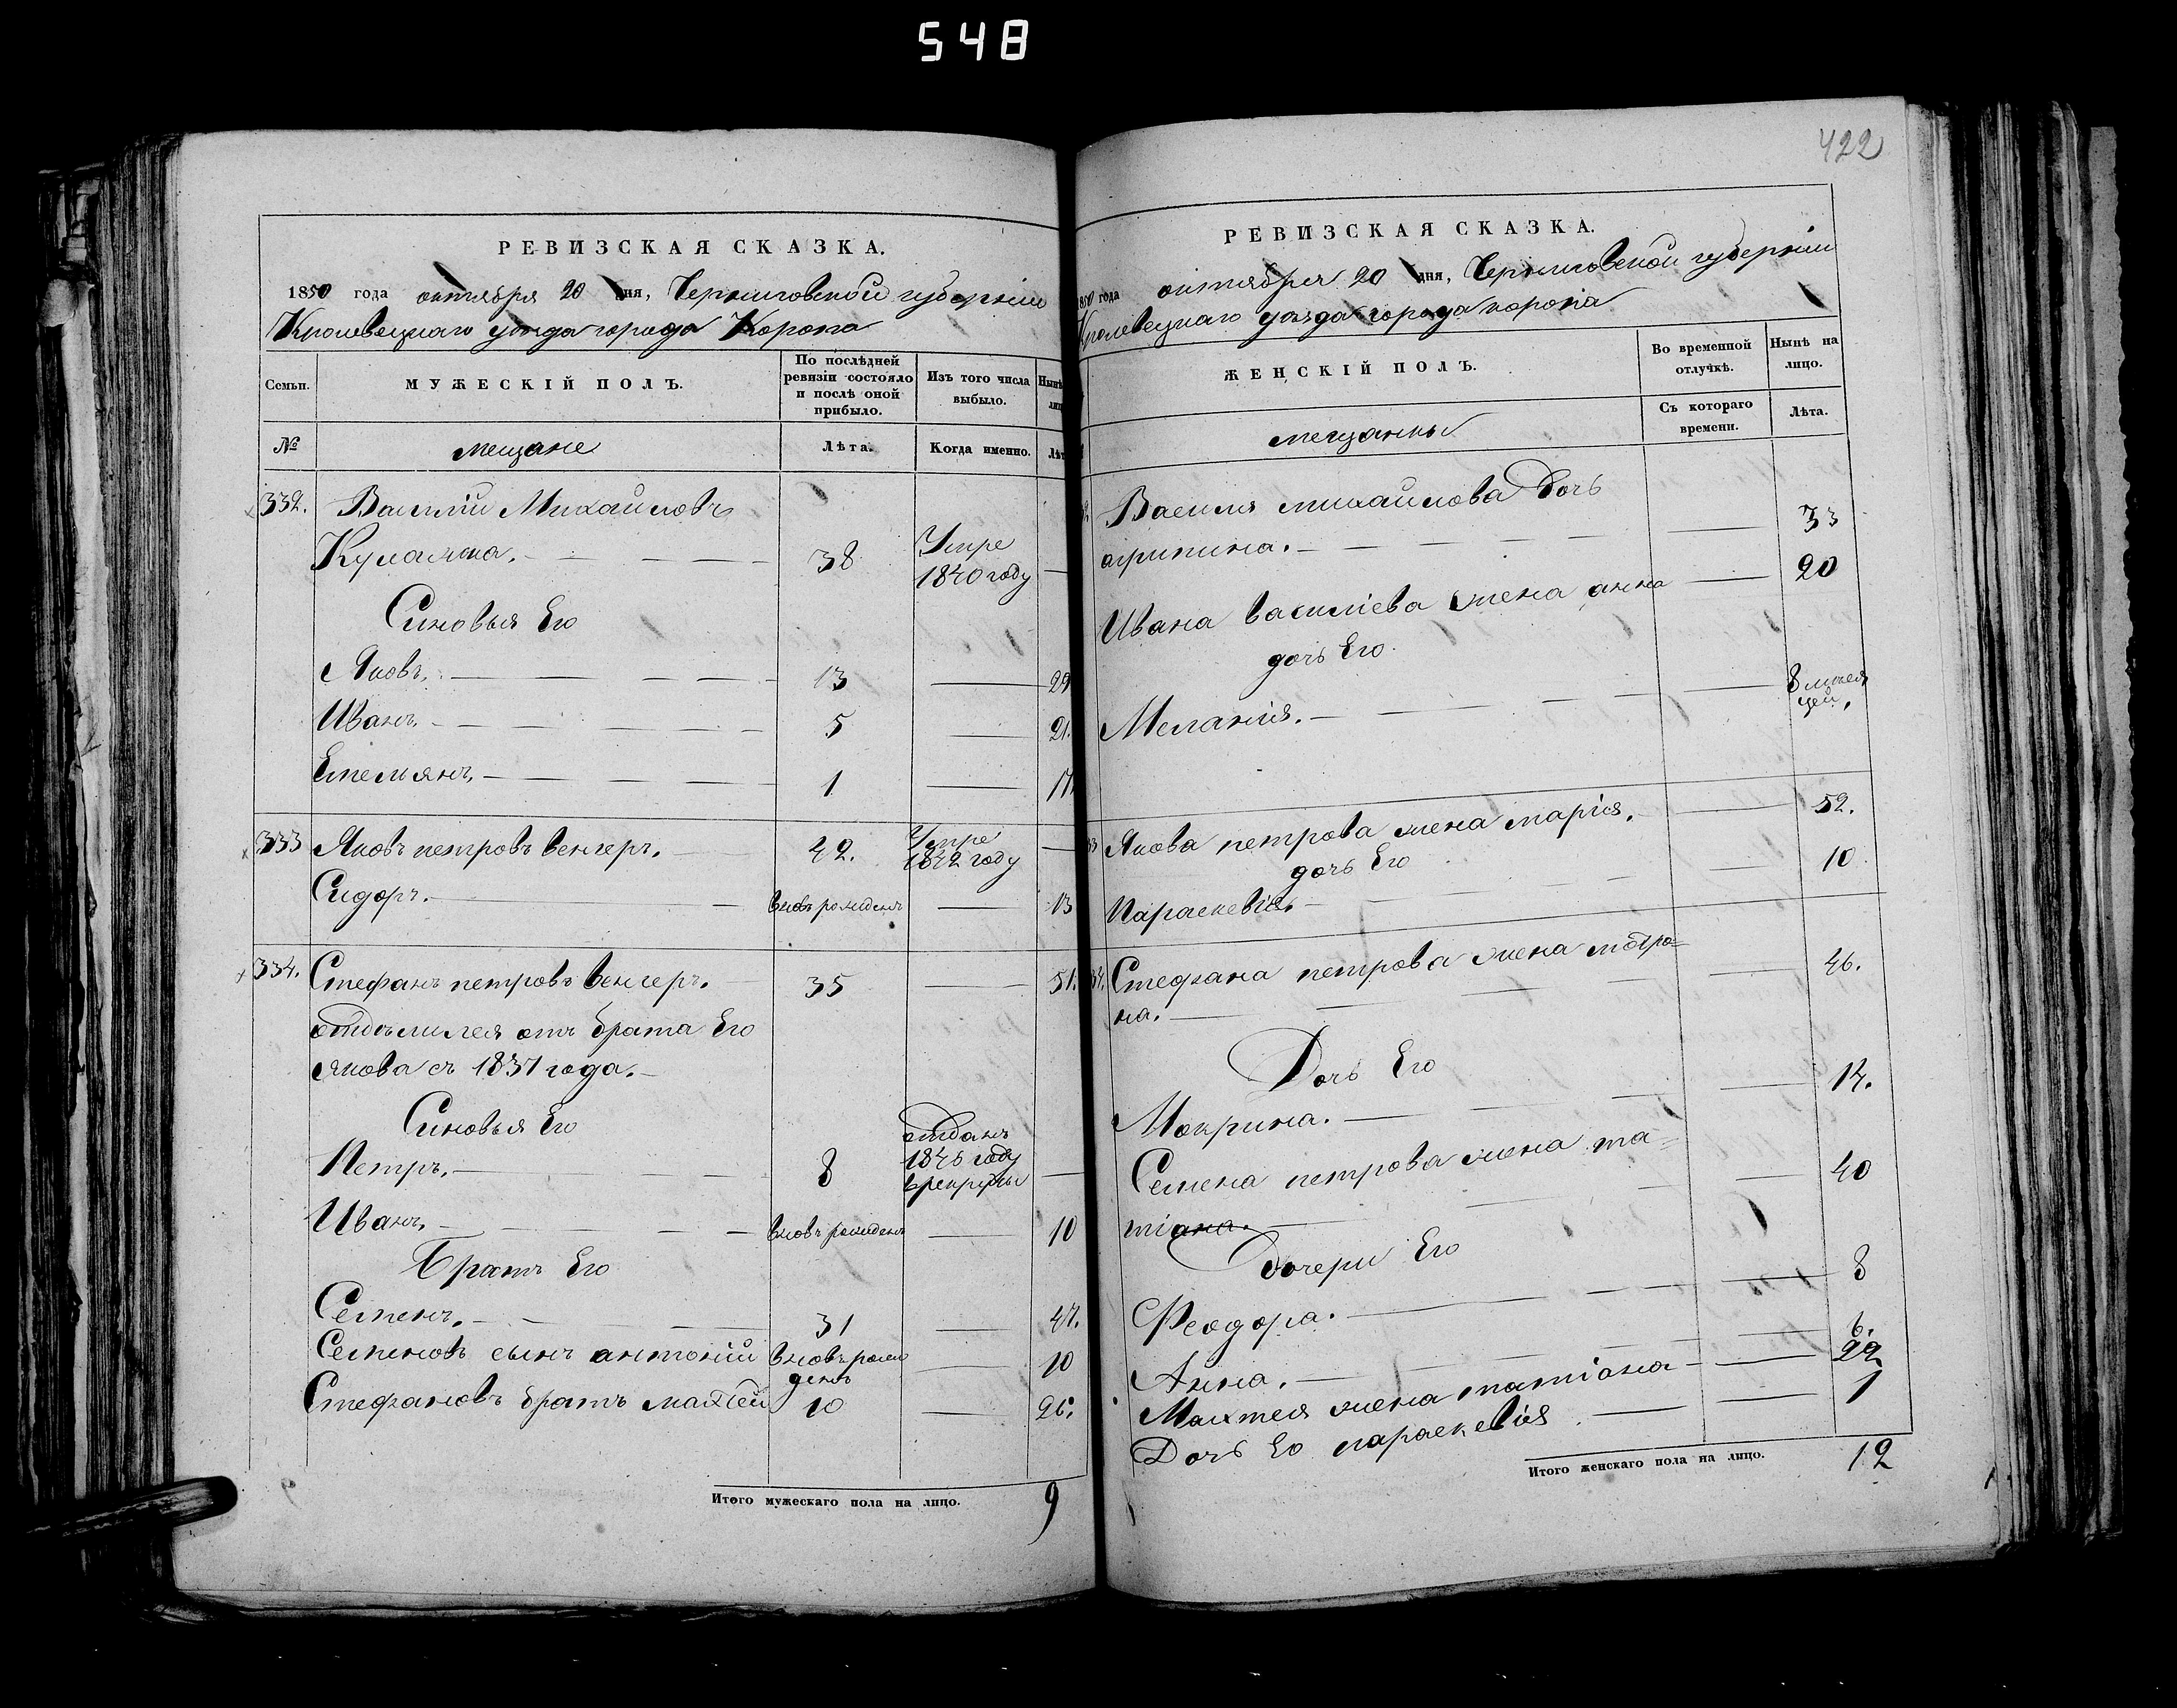 548
422
РЕВИЗСКАЯ СКАЗКА.
1850 года октября 20 дня, Черниговской губерніи
Кролевецкаго уѣзда города Коропа
Семьи. МУЖЕСКІЙ ПОЛЪ. По послѣдней ревизіи состояло и послѣ оной прибыло. Изъ того числа выбыло. Нынѣ
№ мещане Лѣта. Когда именно. Лѣт
332. Василій Михайловъ
Кулажка. 38 Умре 1840 году
Синовья Его
Яковъ. 13 29
Иванъ. 5 21.
Емельянъ. 1 17.
333 Яковъ петровъ венгеръ. 42. Умре 1842 году
Сидоръ. вновъ рожденъ 13
334. Стефанъ петровъ венгеръ. 35 51.
отдѣлился отъ брата Его
якова съ 1837 года.
Синовья Его
Петръ. 8 отданъ 1846 году в рекруты
Иванъ. вновъ рожденъ 10
Братъ Его
Семенъ. 31 47.
Семеновъ сынъ антоній вновъ рожденъ 10
Стефановъ братъ матѳей 10 26.
Итого мужескаго пола на лицо. 9
РЕВИЗСКАЯ СКАЗКА.
850 года октября 20 дня, Черниговской губерніи
Кролевецкаго уѣзда города коропа
ЖЕНСКІЙ ПОЛЪ. Во временной отлучкѣ. Нынѣ на лицо.
мещанки Съ котораго времени. Лѣта.
Василя михайлова дочь
агрипина. 33
Ивана василіева жена анна 20
дочь Его
Меланія. 8 месяцей.
33 Якова петрова жена марія. 52.
дочь Его
Параскевія. 10
34. Стефана петрова жена мотро=
на. 46.
Дочь Его
Мокрина. 14.
Семена петрова жена та=
тіана. 40
дочери Его
Феодора. 8
Анна. 6.
Матѳея жена татіана 22
Дочь Его параскевія 1
Итого женскаго пола на лицо. 12